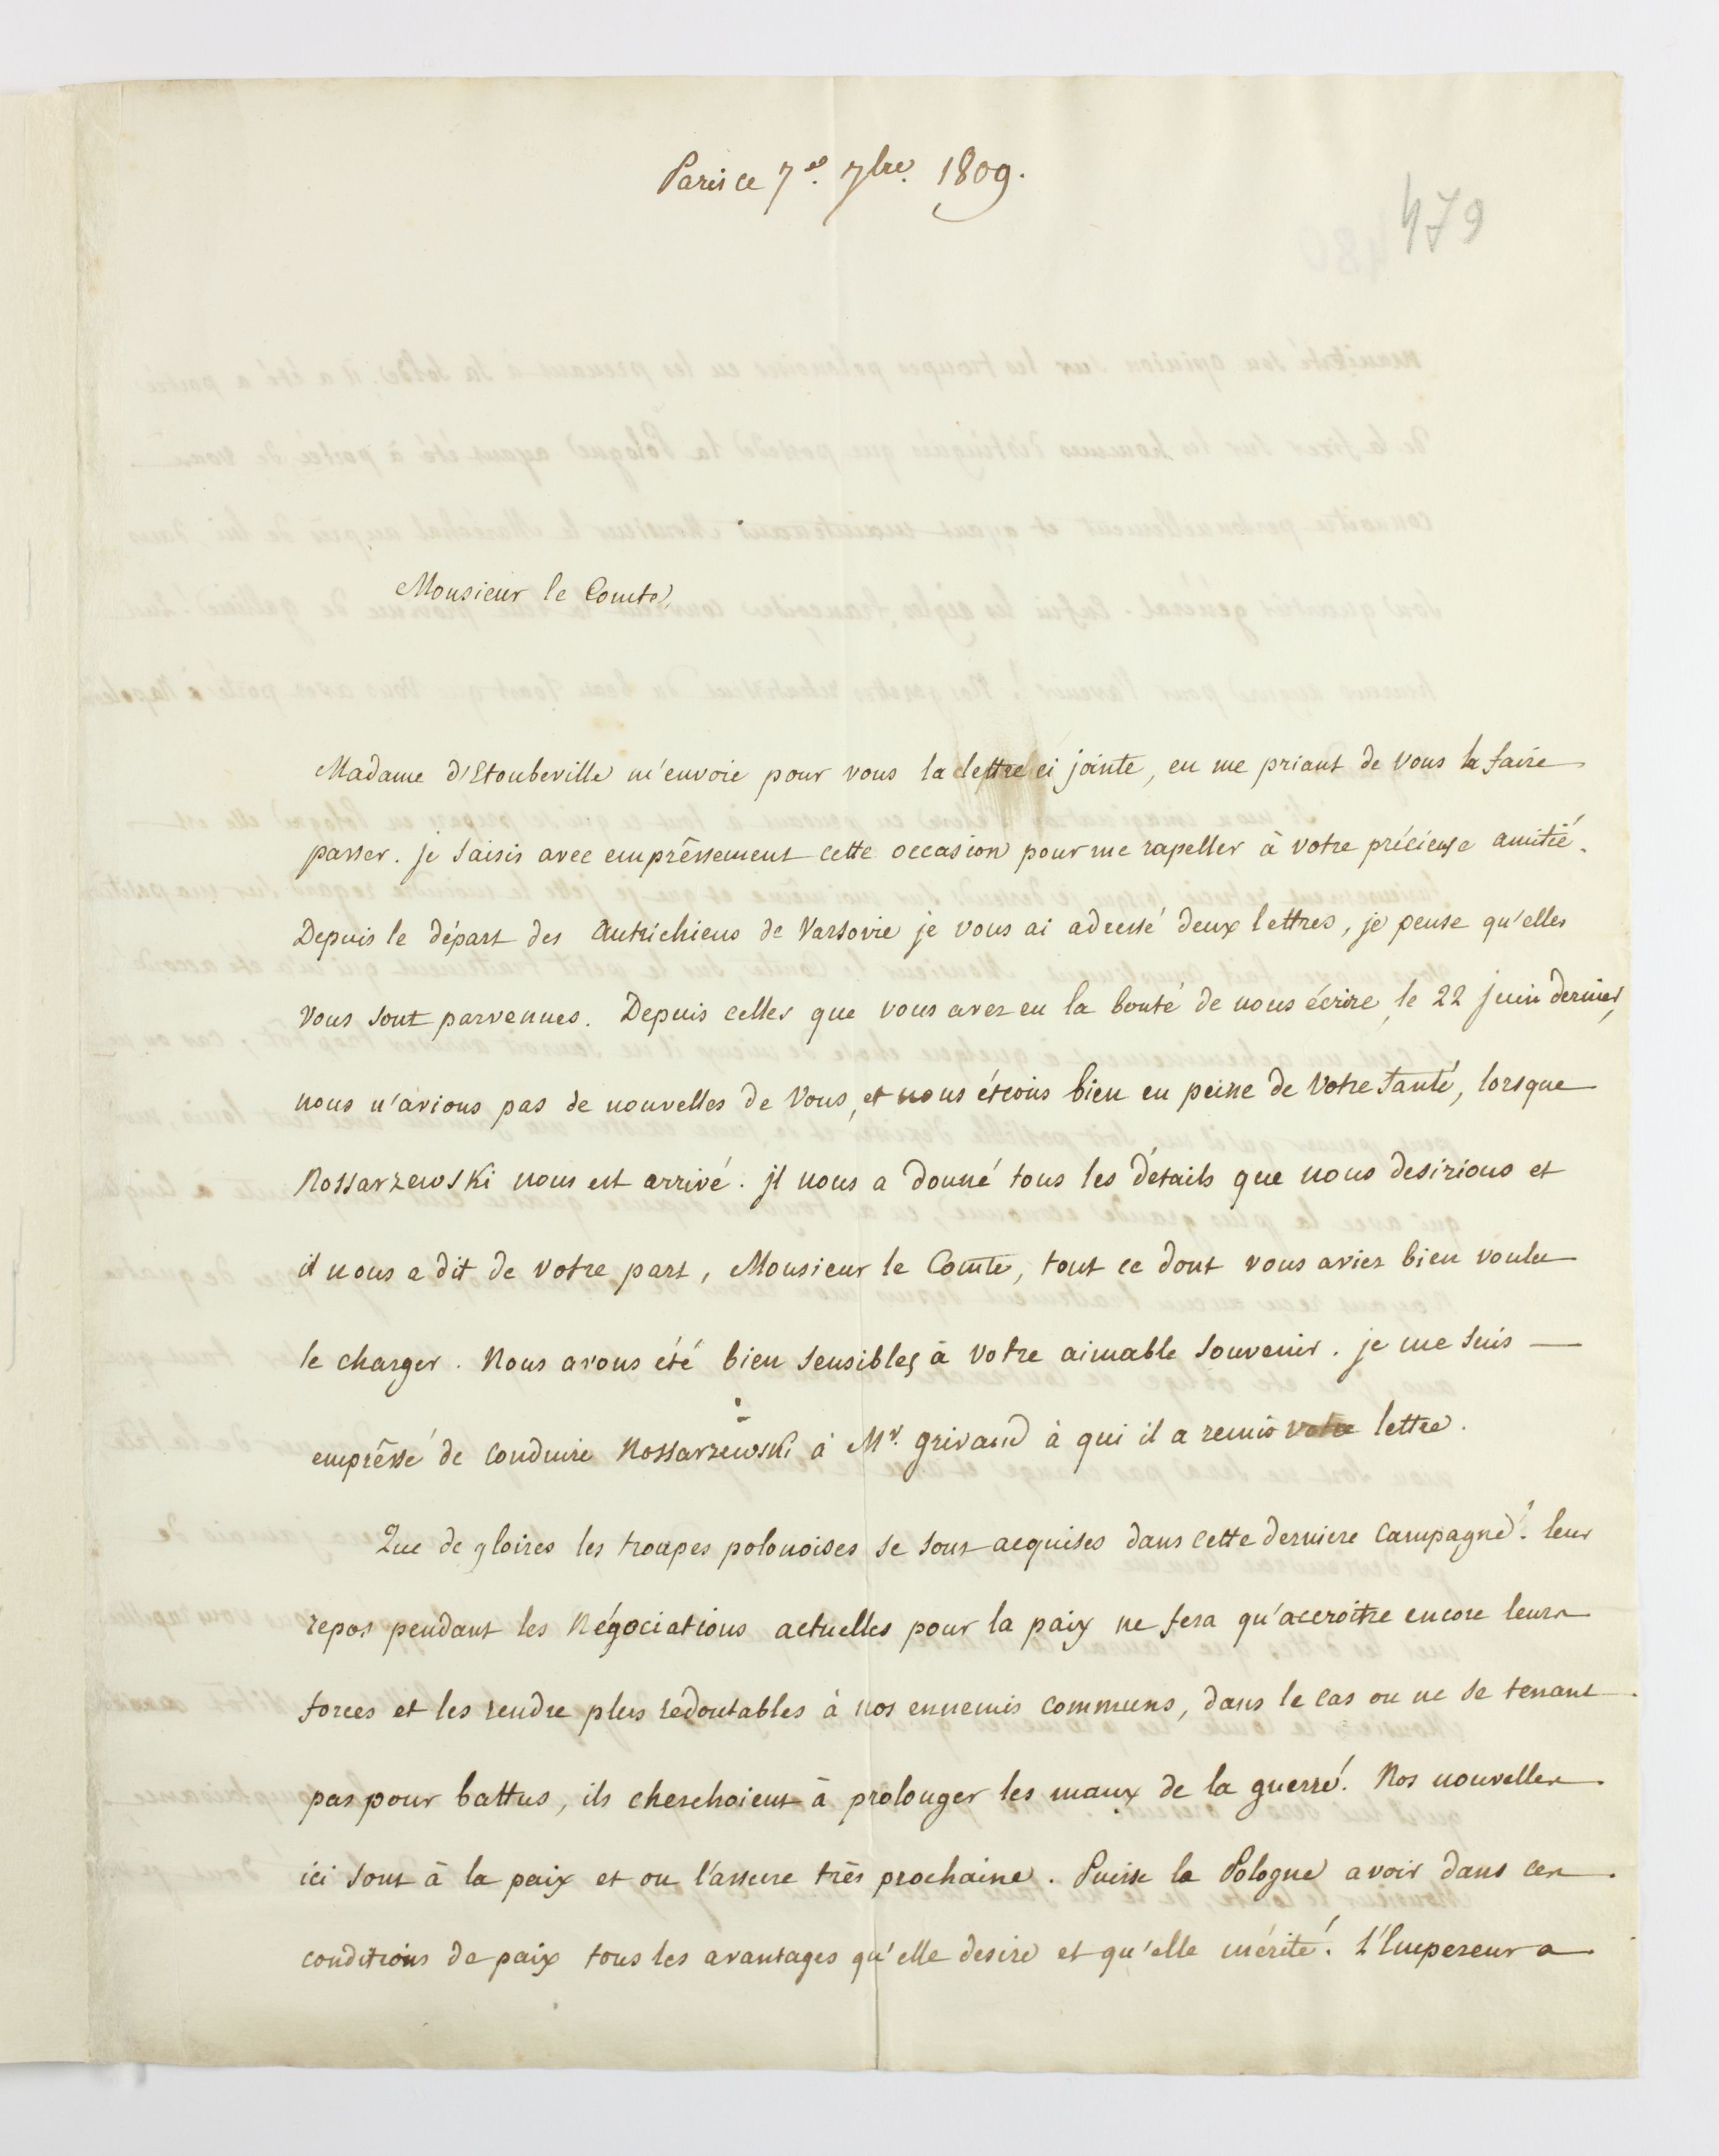 Paris ce 7e. 7bre. 1809.
479
Monsieur le Comte,
Madame d'Etoubeville m'envoie pour vous la lettre ci jointe, en me priant de vous la faire
passer. je saisis avec emprêssement cette occasion pour me rapeller à votre précieuse amitié.
Depuis le départ des Autrichiens de Varsovie je vous ai adressé deux lettres, je pense qu'elles
vous sont parvenues. Depuis celles que vous avez eu la bonté de nous écrire, le 22 juin dernier,
nous n'avions pas de nouvelles de vous, et nous étions bien en peine de votre santé, lorsque
Rossarzewski nous est arrivé. jl nous a donné tous les détails que nous desirions et
il nous a dit de votre part, Monsieur le Comte, tout ce dont vous aviez bien voulu
le charger. Nous avons été bien sensibles à votre aimable souvenir. je me suis —
emprêssé de conduire Rossarzewski à Mr. grivaud à qui il a remis votre lettre.
Que de gloires les troupes polonoises se sont acquises dans cette derniere Campagne! leur
repos pendant les Négociations actuelles pour la paix ne fera qu'accroitre encore leurs
forces et les rendre plus redoutables à nos ennemis communs, dans le cas ou ne se tenant
pas pour battus, ils cherchoient à prolonger les maux de la guerre! Nos nouvelles
ici sont à la paix et on l'assure très prochaine. Puisse la Pologne avoir dans ces
conditions de paix tous les avantages qu'elle desire et qu'elle mérite! L'Empereur a